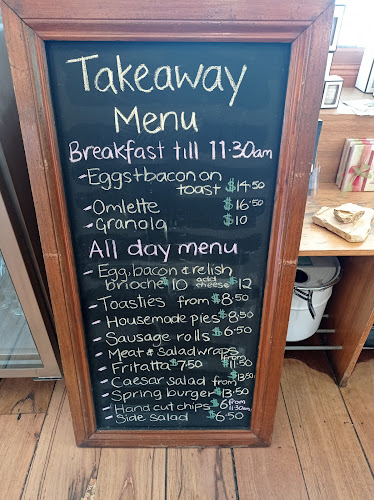 Takeaway
Menu
Breakfast till 11:30am
- Eggs + bacon on
toast $14.50
- Omlette $16.50
- Granola $10
All day menu
- Egg, bacon & relish
brioche $10 add cheese $12
- Toasties from $8.50
- Housemade pies $8.50
- Sausage rolls $6.50
- Meat & salad wraps from $11.50
- Fritatta $7.50
- Caesar salad from $13.50
- Spring burger $13.50
- Hand cut chips $6 from 11:30am
- Side salad $6.50